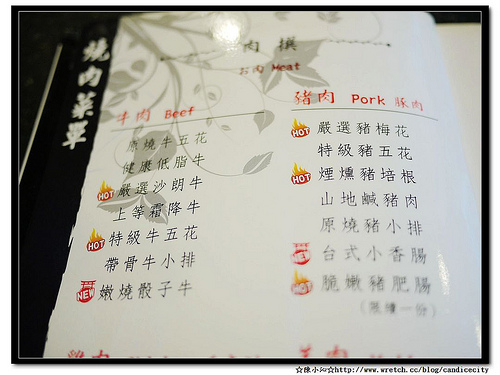 燒肉菜單
肉 撰
お肉 Meat
牛肉 Beef
原燒牛五花
健康低脂牛
HOT 嚴選沙朗牛
上等霜降牛
HOT 特級牛五花
帶骨牛小排
NEW 嫩燒骰子牛
豬肉 Pork 豚肉
HOT 嚴選豬梅花
特級豬五花
HOT 煙燻豬培根
山地鹹豬肉
原燒豬小排
NEW 台式小香腸
HOT 脆嫩豬肥腸
(限續一份)
☆陳小沁☆http://www.wretch.cc/blog/candicecity